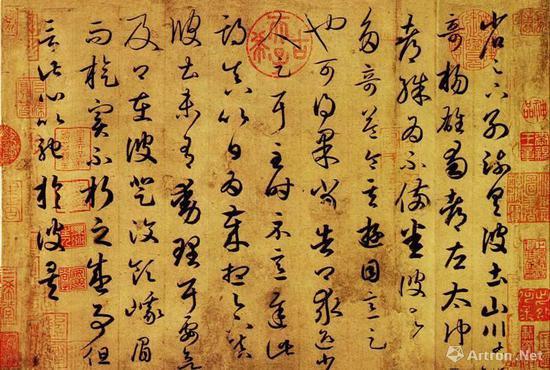 省足下別疏具彼土山川諸
奇楊雄蜀都左太沖三
都殊為不備悉彼故為
多奇益令其遊目意足
也可得果當告卿求迎少
人足耳至時示意遲此
期真以日為歲想足下鎮
彼土未有動理耳要欲
及卿在彼登汶領峨眉
而旋實不朽之盛事但
言此心以馳於彼矣
Artron.Net